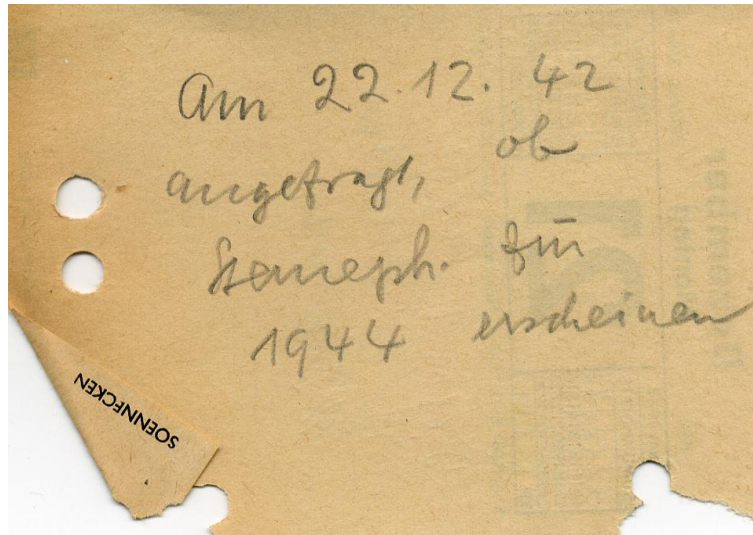 Am 22.12.42
angefragt, ob
Sterneph. für
1944 erscheinen
SOENNECKEN